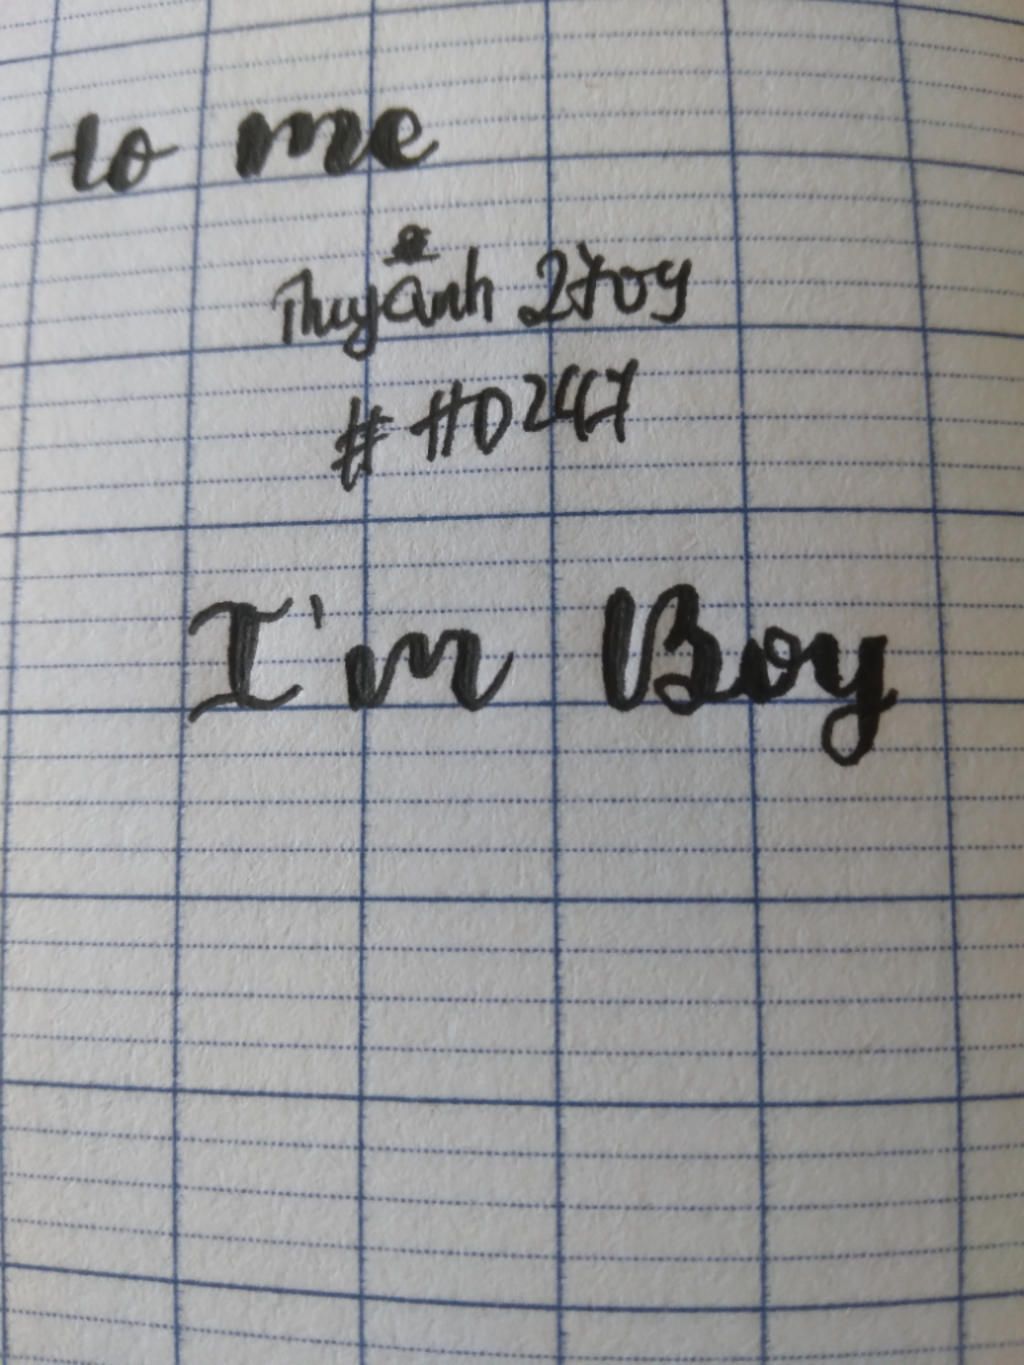 to me
Thuỳ ảnh 2709
# H0247
I'm Boy